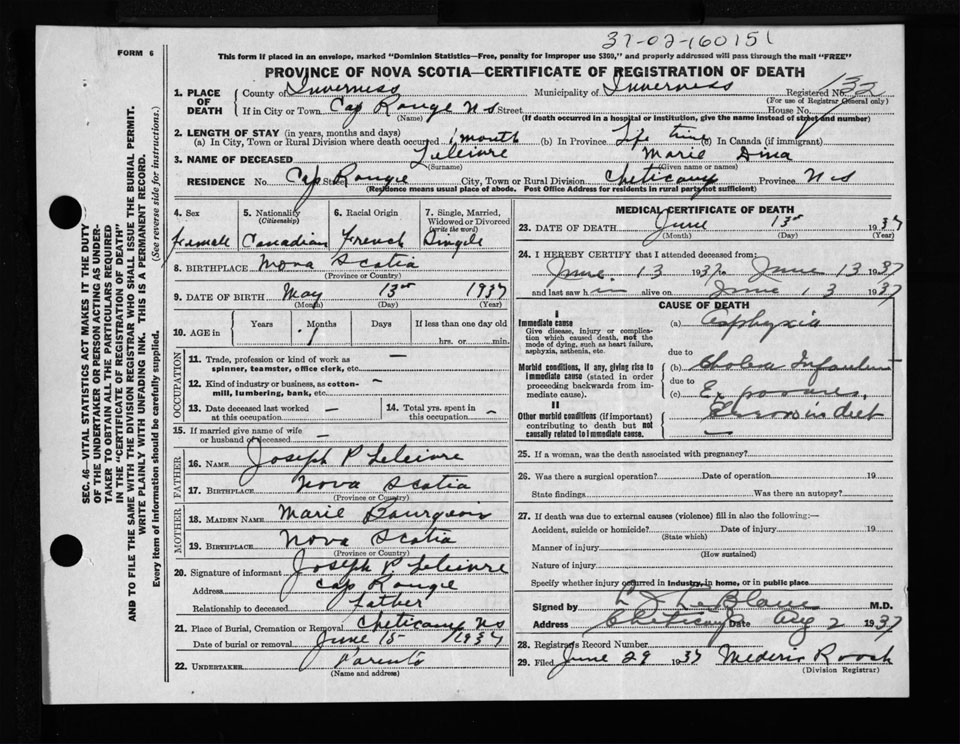 37-02-160151
FORM 6
This form if placed in an envelope, marked "Dominion Statistics—Free, penalty for improper use $300," and properly addressed will pass through the mail "FREE"
PROVINCE OF NOVA SCOTIA—CERTIFICATE OF REGISTRATION OF DEATH
SEC. 46—VITAL STATISTICS ACT MAKES IT THE DUTY
OF THE UNDERTAKER OR PERSON ACTING AS UNDER-
TAKER TO OBTAIN ALL THE PARTICULARS REQUIRED
IN THE "CERTIFICATE OF REGISTRATION OF DEATH"
AND TO FILE THE SAME WITH THE DIVISION REGISTRAR WHO SHALL ISSUE THE BURIAL PERMIT.
WRITE PLAINLY WITH UNFADING INK. THIS IS A PERMANENT RECORD.
Every item of information should be carefully supplied. (See reverse side for instructions.)
1. PLACE OF DEATH County of Inverness Municipality of Inverness Registered No. 132
(For use of Registrar General only)
If in City or Town Cap Rouge N s Street House No.
(Name) (If death occurred in a hospital or institution, give the name instead of street and number)
2. LENGTH OF STAY (in years, months and days)
(a) In City, Town or Rural Division where death occurred 1 month (b) In Province Life time (c) In Canada (if immigrant)
3. NAME OF DECEASED Leleivre Marie Dina
(Surname) (Given name or names)
RESIDENCE No. Cap Rougie Street City, Town or Rural Division Cheticamp Province N s
(Residence means usual place of abode. Post Office Address for residents in rural parts not sufficient)
4. Sex 5. Nationality (Citizenship) 6. Racial Origin 7. Single, Married, Widowed or Divorced (write the word)
female Canadian French Single
8. BIRTHPLACE Nova Scotia
(Province or Country)
9. DATE OF BIRTH May 13 1937
(Month) (Day) (Year)
10. AGE in Years Months Days If less than one day old
1 hrs. or min.
OCCUPATION
11. Trade, profession or kind of work as spinner, teamster, office clerk, etc. —
12. Kind of industry or business, as cotton-mill, lumbering, bank, etc. —
13. Date deceased last worked at this occupation — 14. Total yrs. spent in this occupation —
15. If married give name of wife or husband of deceased —
FATHER
16. NAME Joseph P Leleivre
17. BIRTHPLACE Nova Scotia
(Province or Country)
MOTHER
18. MAIDEN NAME Marie Bourgeois
19. BIRTHPLACE Nova Scotia
(Province or Country)
20. Signature of informant Joseph P. Leleivre
Address Cap Rougie
Relationship to deceased Father
21. Place of Burial, Cremation or Removal Cheticamp N s
Date of burial or removal June 15 1937
22. UNDERTAKER Parents
(Name and address)
MEDICAL CERTIFICATE OF DEATH
23. DATE OF DEATH June 13 1937
(Month) (Day) (Year)
24. I HEREBY CERTIFY that I attended deceased from:
June 13 1937 to June 13 1937
and last saw h im alive on June 13 1937
CAUSE OF DEATH
I
Immediate cause (a) Asphyxia
Give disease, injury or complication which caused death, not the mode of dying, such as heart failure, asphyxia, asthenia, etc.
due to
Morbid conditions, if any, giving rise to immediate cause (stated in order proceeding backwards from immediate cause). (b) Cholera Infantum
due to
(c) Exposures,
II
Other morbid conditions (if important) contributing to death but not causally related to immediate cause. Errors in diet
25. If a woman, was the death associated with pregnancy?
26. Was there a surgical operation? Date of operation 19
State findings Was there an autopsy?
27. If death was due to external causes (violence) fill in also the following:—
Accident, suicide or homicide? Date of injury 19
(State which)
Manner of injury
(How sustained)
Nature of injury
Specify whether injury occurred in industry, in home, or in public place
Signed by LeBlanc M.D.
Address Cheticamp Date Aug 2 1937
28. Registrar's Record Number
29. Filed June 29 1937 Mederic Roach
(Division Registrar)